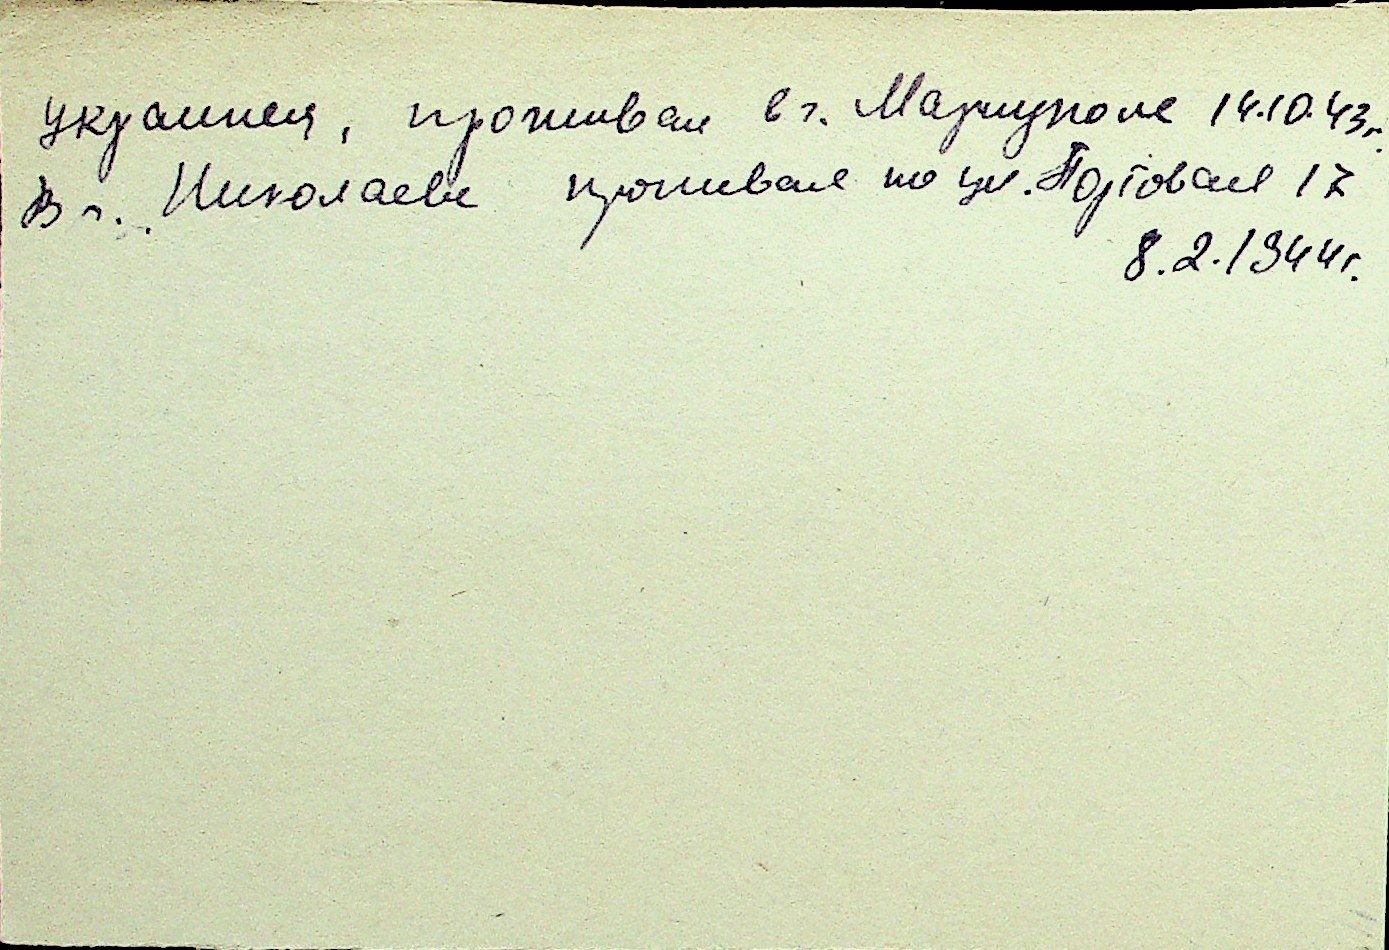 украинец, проживал в г. Мариуполе 14.10.43г.
В г. Николаеве проживал по ул. Портовая 17
8.2.1944г.